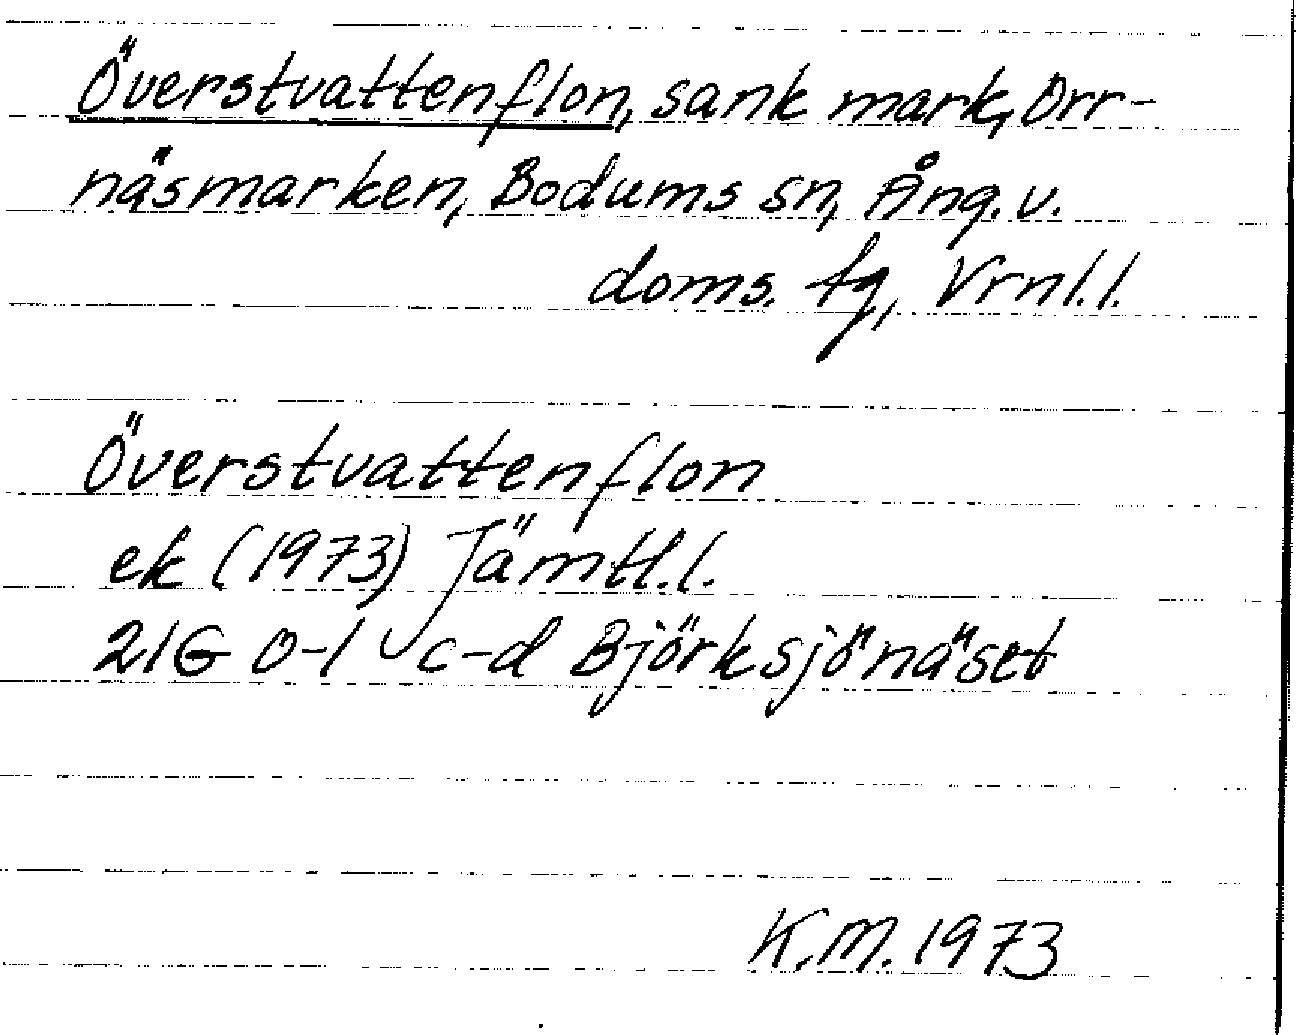 Överstvattenflon, sank mark, Orr-
näsmarken, Bodums sn, Ång. v.
doms. fg, Vrnl.l.
Överstvattenflon
ek (1973) Jämtl.l.
21G 0-1 c-d Björksjönäset
K.M. 1973